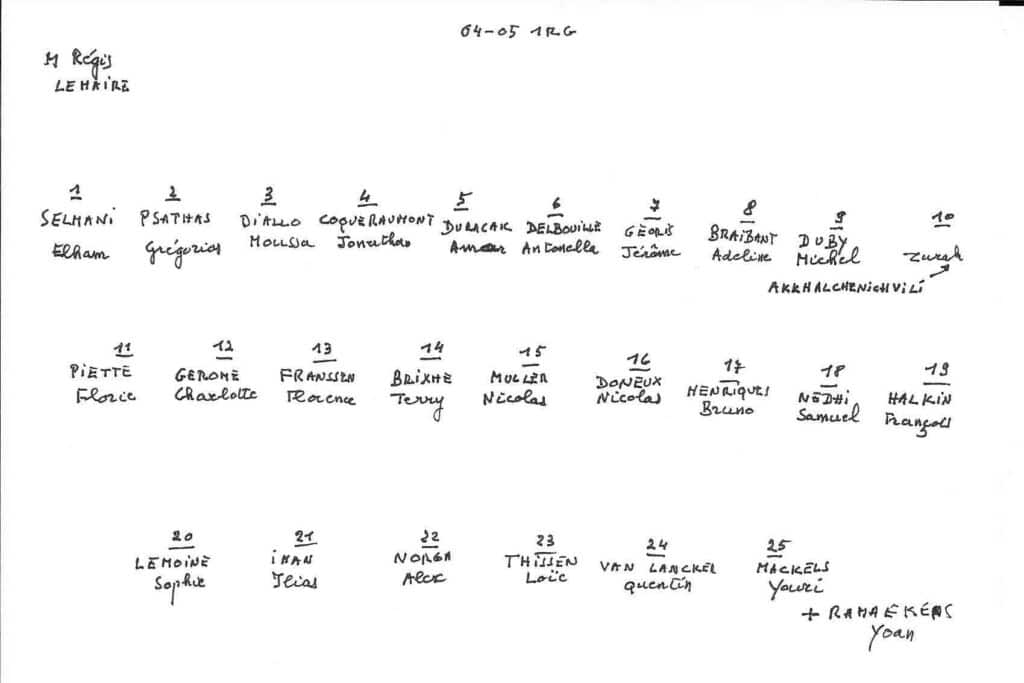 04-05 1RG
M Régis
LEMAIRE
1 2 3 4 5 6 7 8 9 10
SELMANI PSATHAS DIALLO COQUERAUMONT DURACAK DELBOUILLE GEORIS BRAIBANT DUBY
Elham Grégorios Moussa Jonathan Antonella Jérôme Adeline Michel Zurab
AKKHALCHENICHVILI
11 12 13 14 15 16 17 18 19
PIETTE GEROME FRANSSEN BRIXHE MULLER DONEUX HENRIQUES NEDHI HALKIN
Florie Charlotte Florence Terry Nicolas Nicolas Bruno Samuel François
20 21 22 23 24 25
LEMOINE IMAN NORGA THISSEN VAN LANCKER MACKELS
Sophie Ilias Alex Loïc quentin Youri
+ RAMAEKERS
Yoan